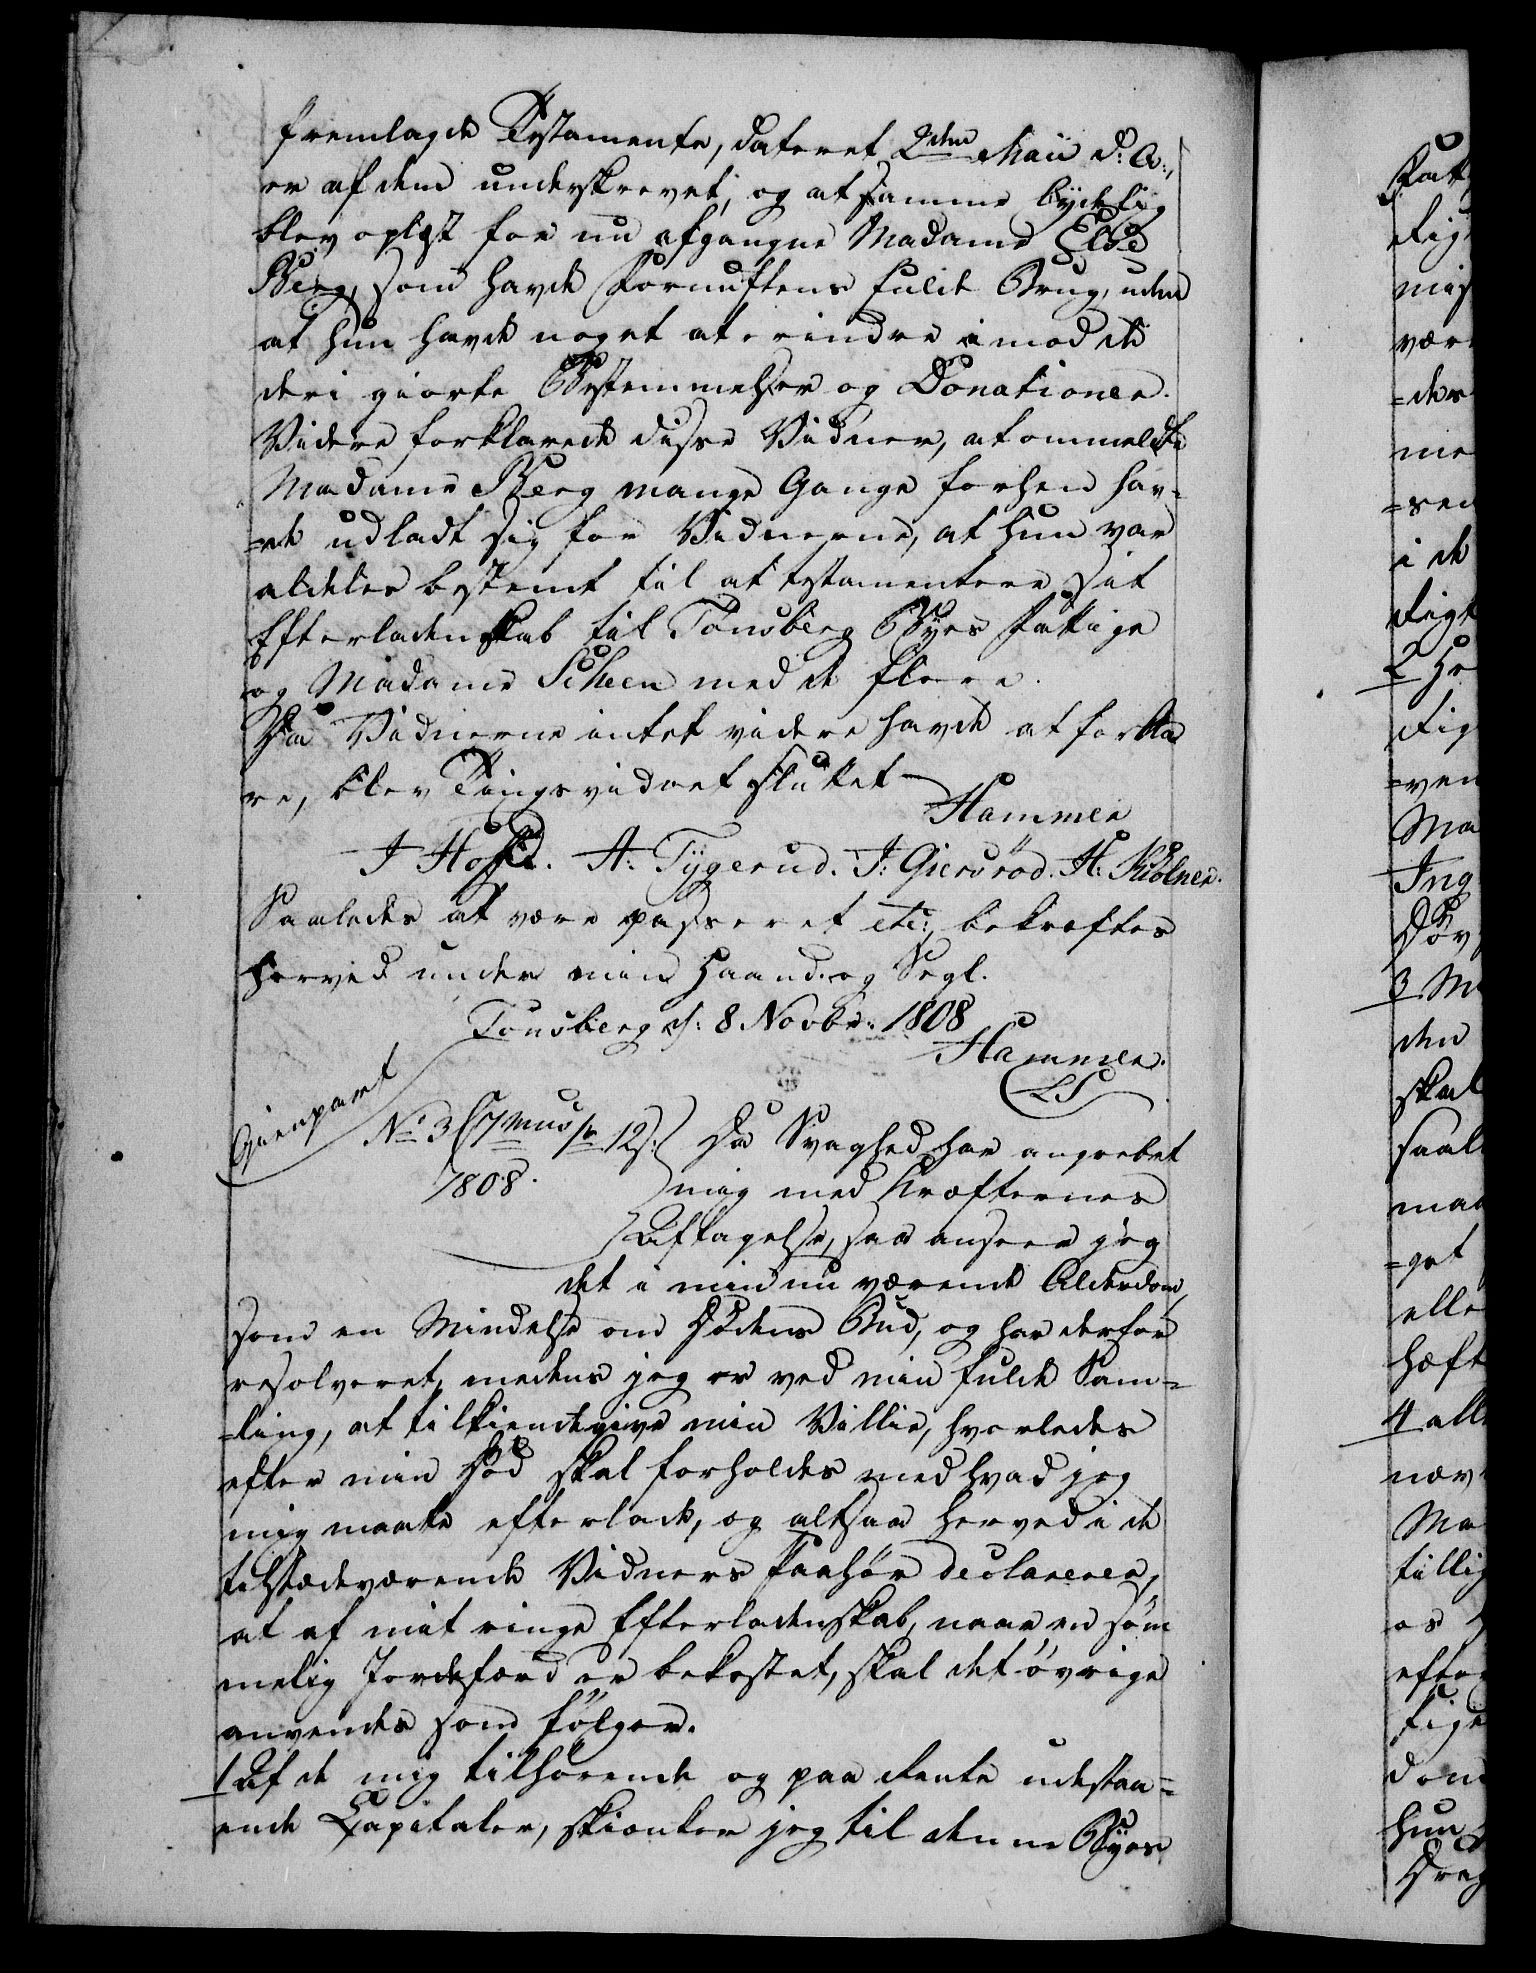 fremlagde Testamente, dateret 2den Maii d: A:,
er af dem underskrevet, og at samme lydelig
blev oplæst for nu afgangne Madame Else
Berg, som havde Fornuftens fulde Brug, uden
at hun havde noget at erindre imod de
deri giorte Bestemmelser og Donationer.
Videre forklarede disse Vidner, at ommeldte
Madame Berg mange Gange forhen hav-
=de udladt sig for Vidnerne, at hun var
aldeles bestemt til at testamentere sit
Efterladenskab til Tønsberg Byes Fattige
og Madame Scheen med de flere.
Da Vidnerne intet videre havde at forkla
re, blev Tingsvidnet sluttet
Hammer
J Hoff. A: Tygerud. J: Giersrød. H: Kiølner.
Saaledes at være passeret etc:, bekræftes
herved under min Haand og Segl.
Tønsberg d: 8 Novbr: 1808
Hammer.
LS
Gienpart
No 3 C 7mus 12s: Da Svaghed har angrebet
1808. mig med Kræfternes
Aftagelse, saa anseer jeg
det i min nu værende Alderdom,
som en Mindelse om Dødens Bud, og har derfor
resolveret, medens jeg er ved min fulde Sam=
=ling, at tilkiendegive min Villie, hvorledes
efter min Død skal forholdes med hvad jeg
mig maatte efterlade, og altsaa herved i de
tilstædeværende Vidners Paahør declarerer,
at af mit ringe Efterladenskab, naar en søm
melig Jordefærd er bekostet, skal det øvrige
anvendes som følger.
1 Af de mig tilhørende og paa Rente udestaa=
ende Capitaler, skienker jeg til denne Byes